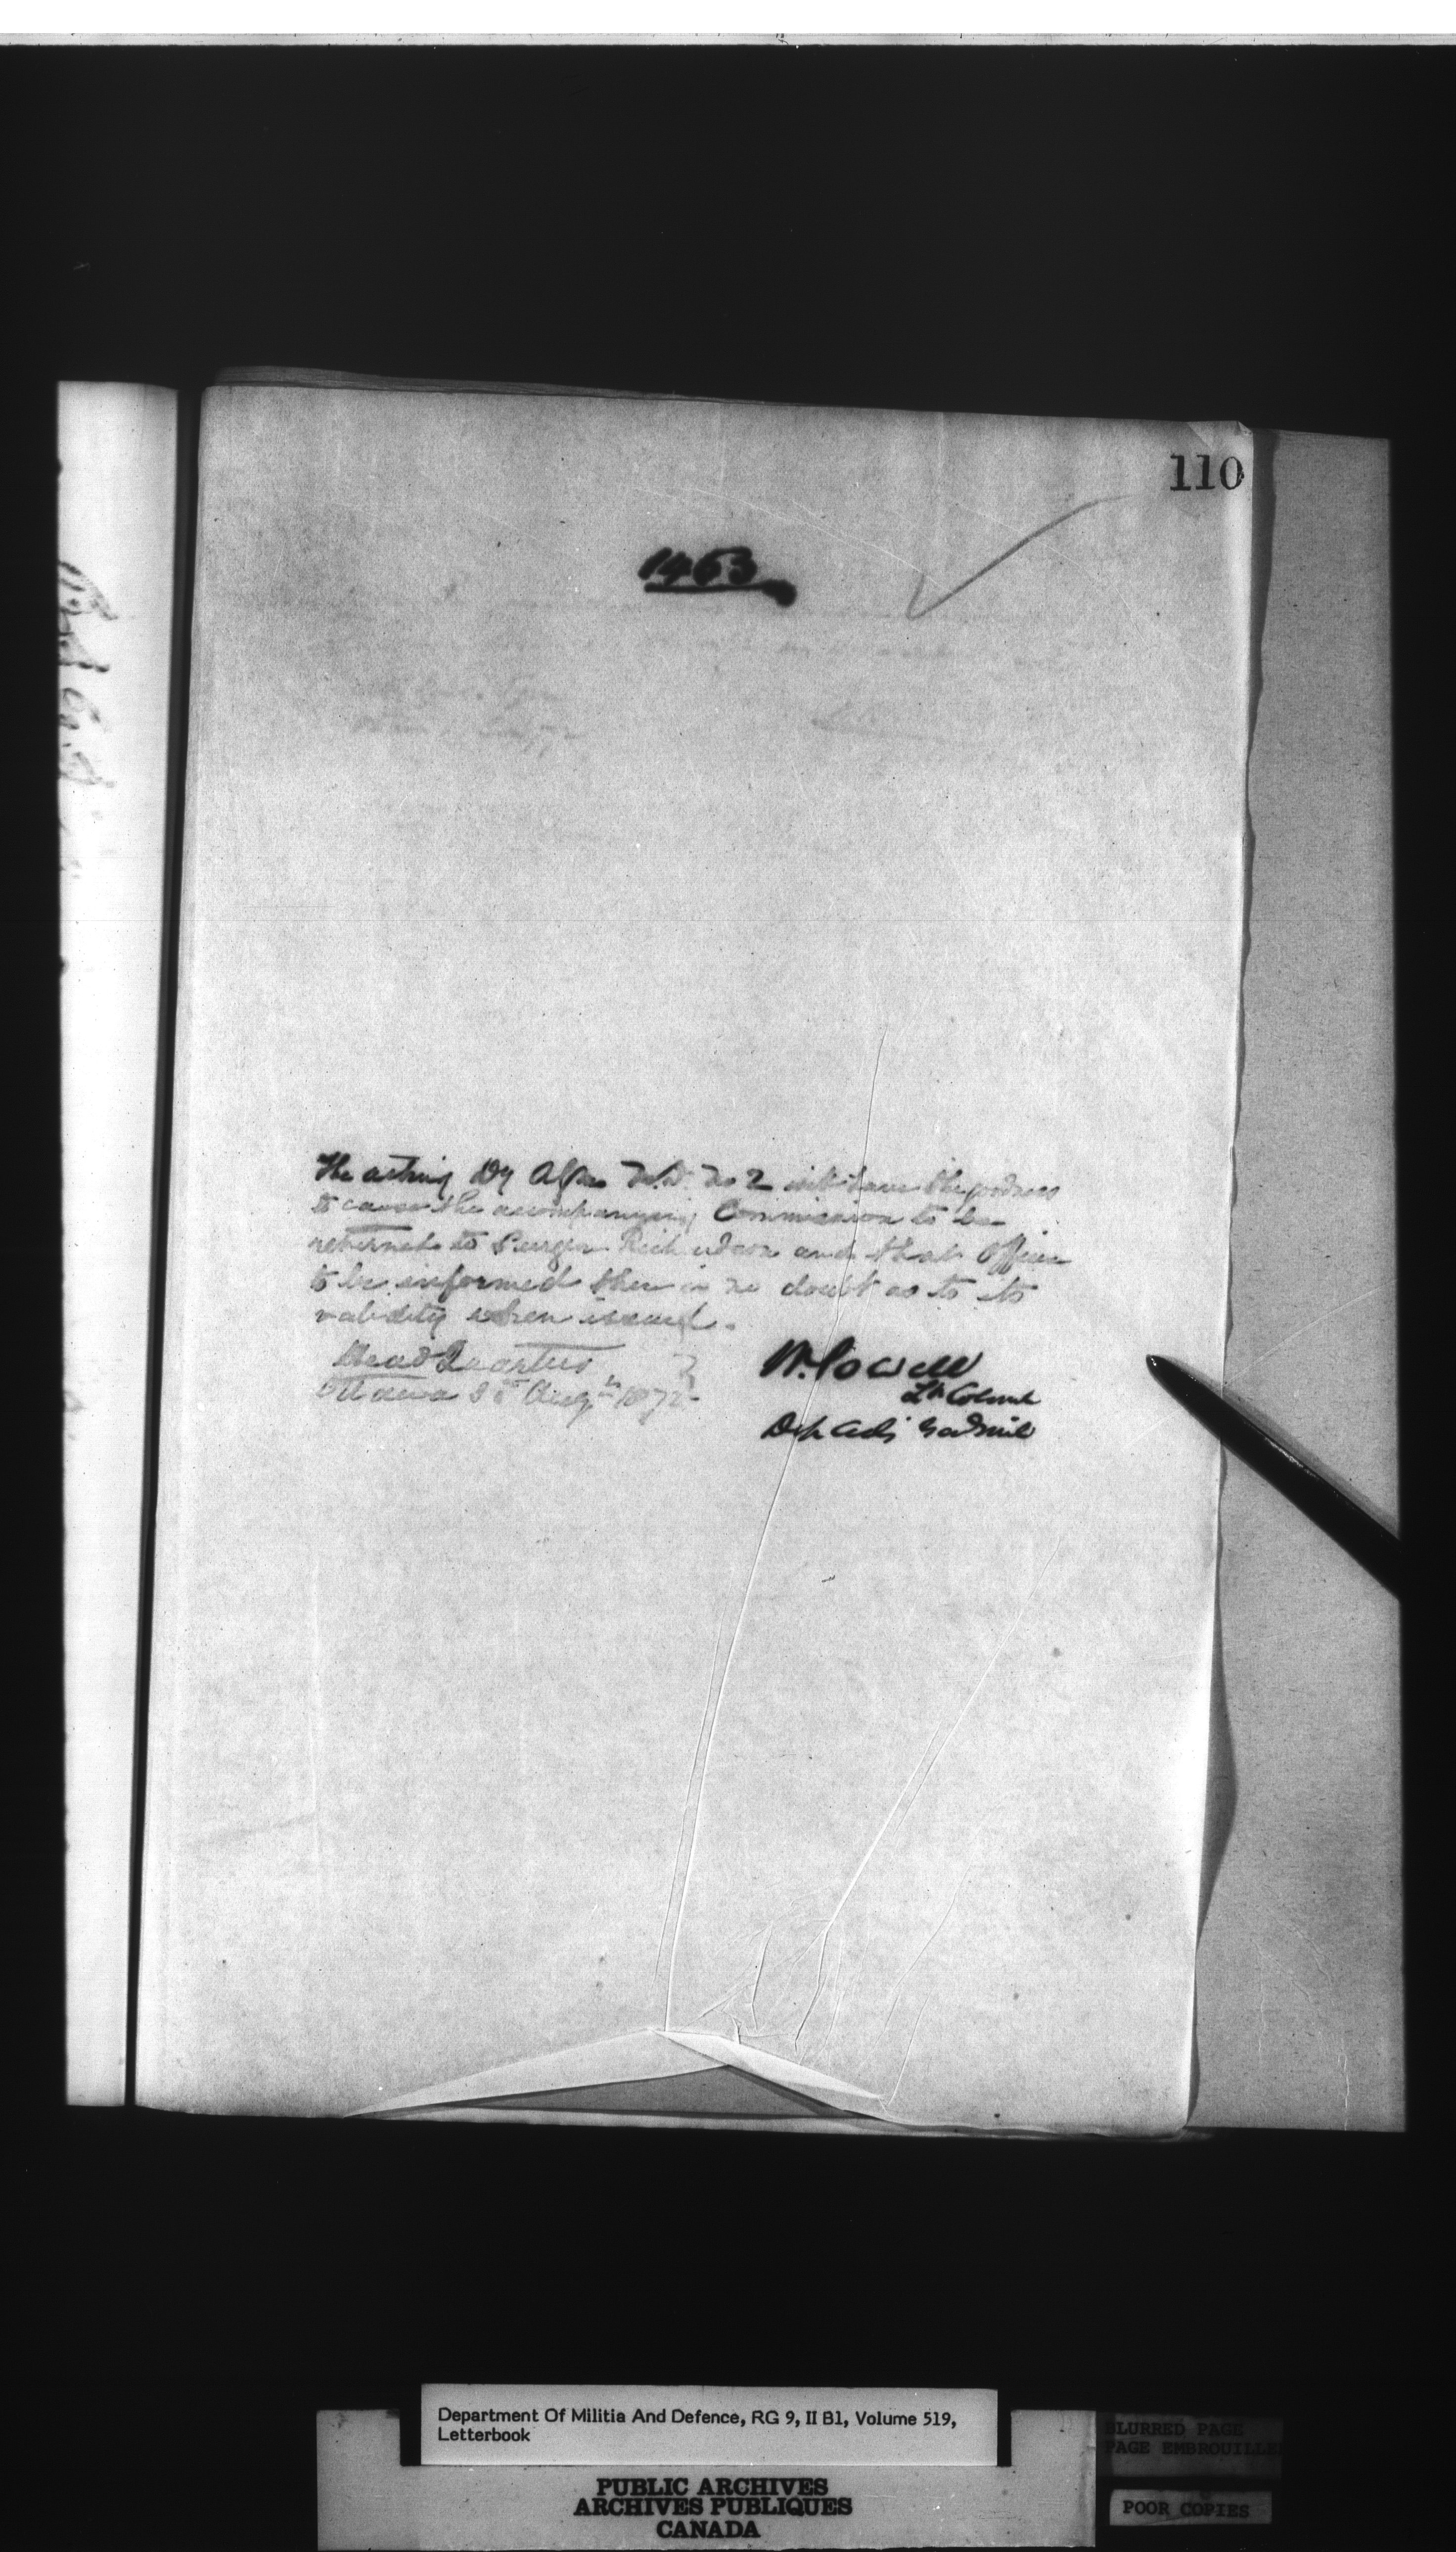 110
1463
The acting Dy AGM M.D. No 2 will have the goodness
to cause the accompanying Commission to be
returned to Surgeon Richardson and that Officer
to be informed there is no doubt as to its
validity when issued.
Head Quarters
Ottawa Augt 1872
W. Powell
Lt. Colonel
Dep Adj Gen Mil
Department Of Militia And Defence, RG 9, II B1, Volume 519,
Letterbook
PUBLIC ARCHIVES
ARCHIVES PUBLIQUES
CANADA
BLURRED PAGE
PAGE EMBROUILLE
POOR COPIES